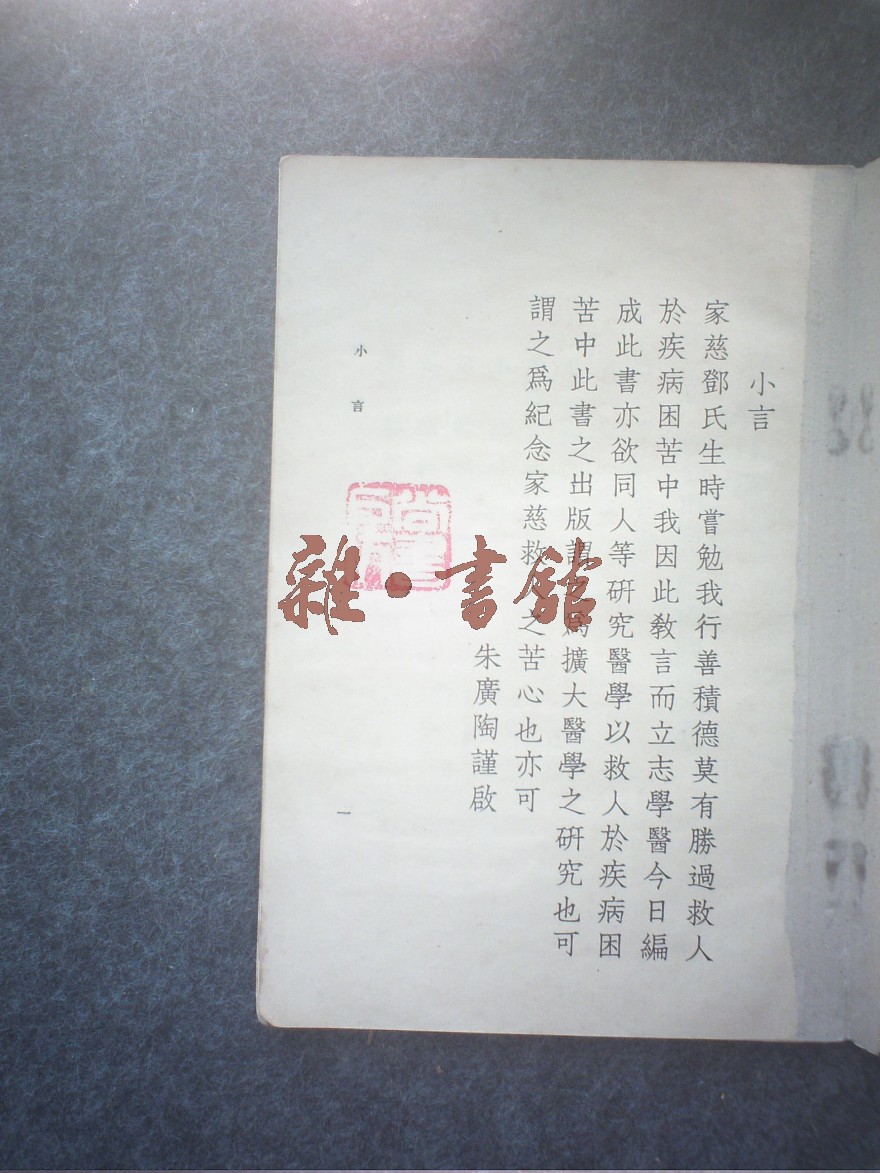 小言
家慈鄧氏生時嘗勉我行善積德莫有勝過救人
於疾病困苦中我因此教言而立志學醫今日編
成此書亦欲同人等研究醫學以救人於疾病困
苦中此書之出版謂 為擴大醫學之研究也可
謂之爲紀念家慈救 之苦心也亦可
朱廣陶謹啟
小言
一
雜·書館